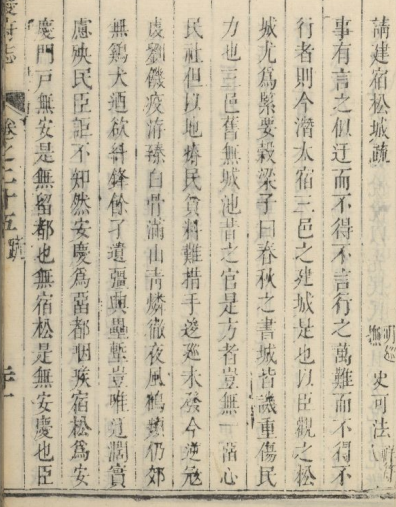 請建宿松城疏
明巡撫 史可法
事有言之似迂而不得不言行之萬難而不得不
行者則今潛太宿三邑之建城是也以臣觀之松
城尤爲緊要穀梁子曰春秋之書城皆譏重傷民
力也三邑舊無城池昔之官是方者豈無一留心
民社但以地瘠民貧料難措手逡巡未發今逆寇
虔劉饑疫洊臻白骨滿山青燐徹夜風鶴頻仍郊
無鷄犬迺欲斜鋒餘孑遺彊興壘塹豈唯迂闊實
慮殃民臣詎不知然安慶爲留都咽喉宿松爲安
慶門戶無安是無留都也無宿松是無安慶也臣
慶府志
卷之二十五